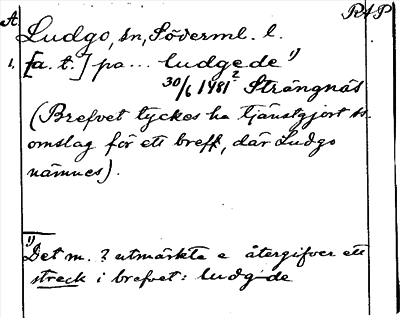 A. RAP
Ludgo, sn, Söderml. l.
1. [a. t.] pa ... ludgede 1)
30/6 1481? Strängnäs
(Brefvet tyckes ha tjänstgjort ss.
omslag för ett breff, där Ludgo
nämnes).
1)
Det m. ? utmärkta e återgifver ett
streck i brefvet: ludg-de